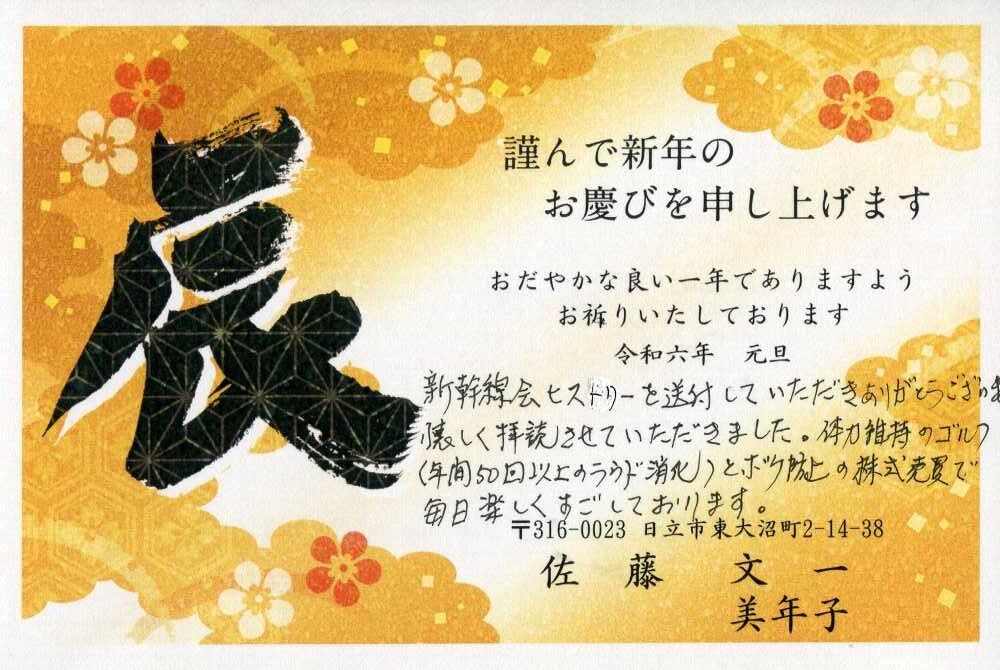 辰
謹んで新年の
お慶びを申し上げます
おだやかな良い一年でありますよう
お祈りいたしております
令和六年 元旦
新幹線会ヒストリーを送付していただきありがとうござい
懐しく拝読させていただきました。体力維持のゴルフ
(年間50回以上のラウド消化)とボケ防止の株式売買で
毎日楽しくすごしております。
〒316-0023 日立市東大沼町2-14-38
佐藤 文一
美年子